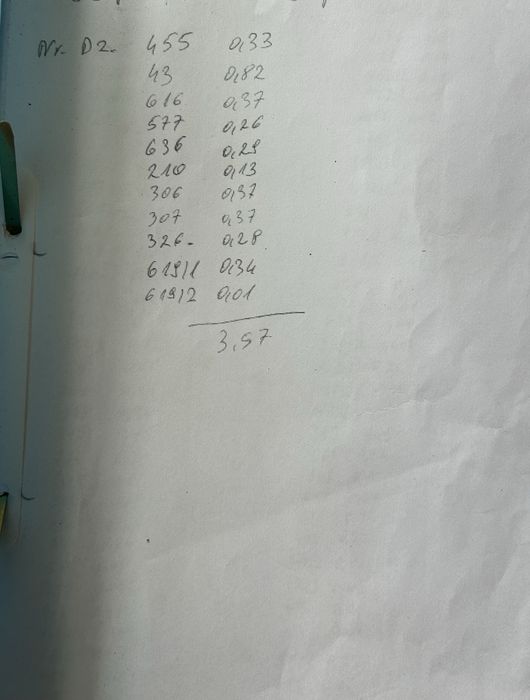 Nr. Dz. 455 0,33
43 0,82
616 0,37
577 0,26
636 0,29
210 0,13
306 0,37
307 0,37
326. 0,28
619/1 0,34
619/2 0,01
3,57